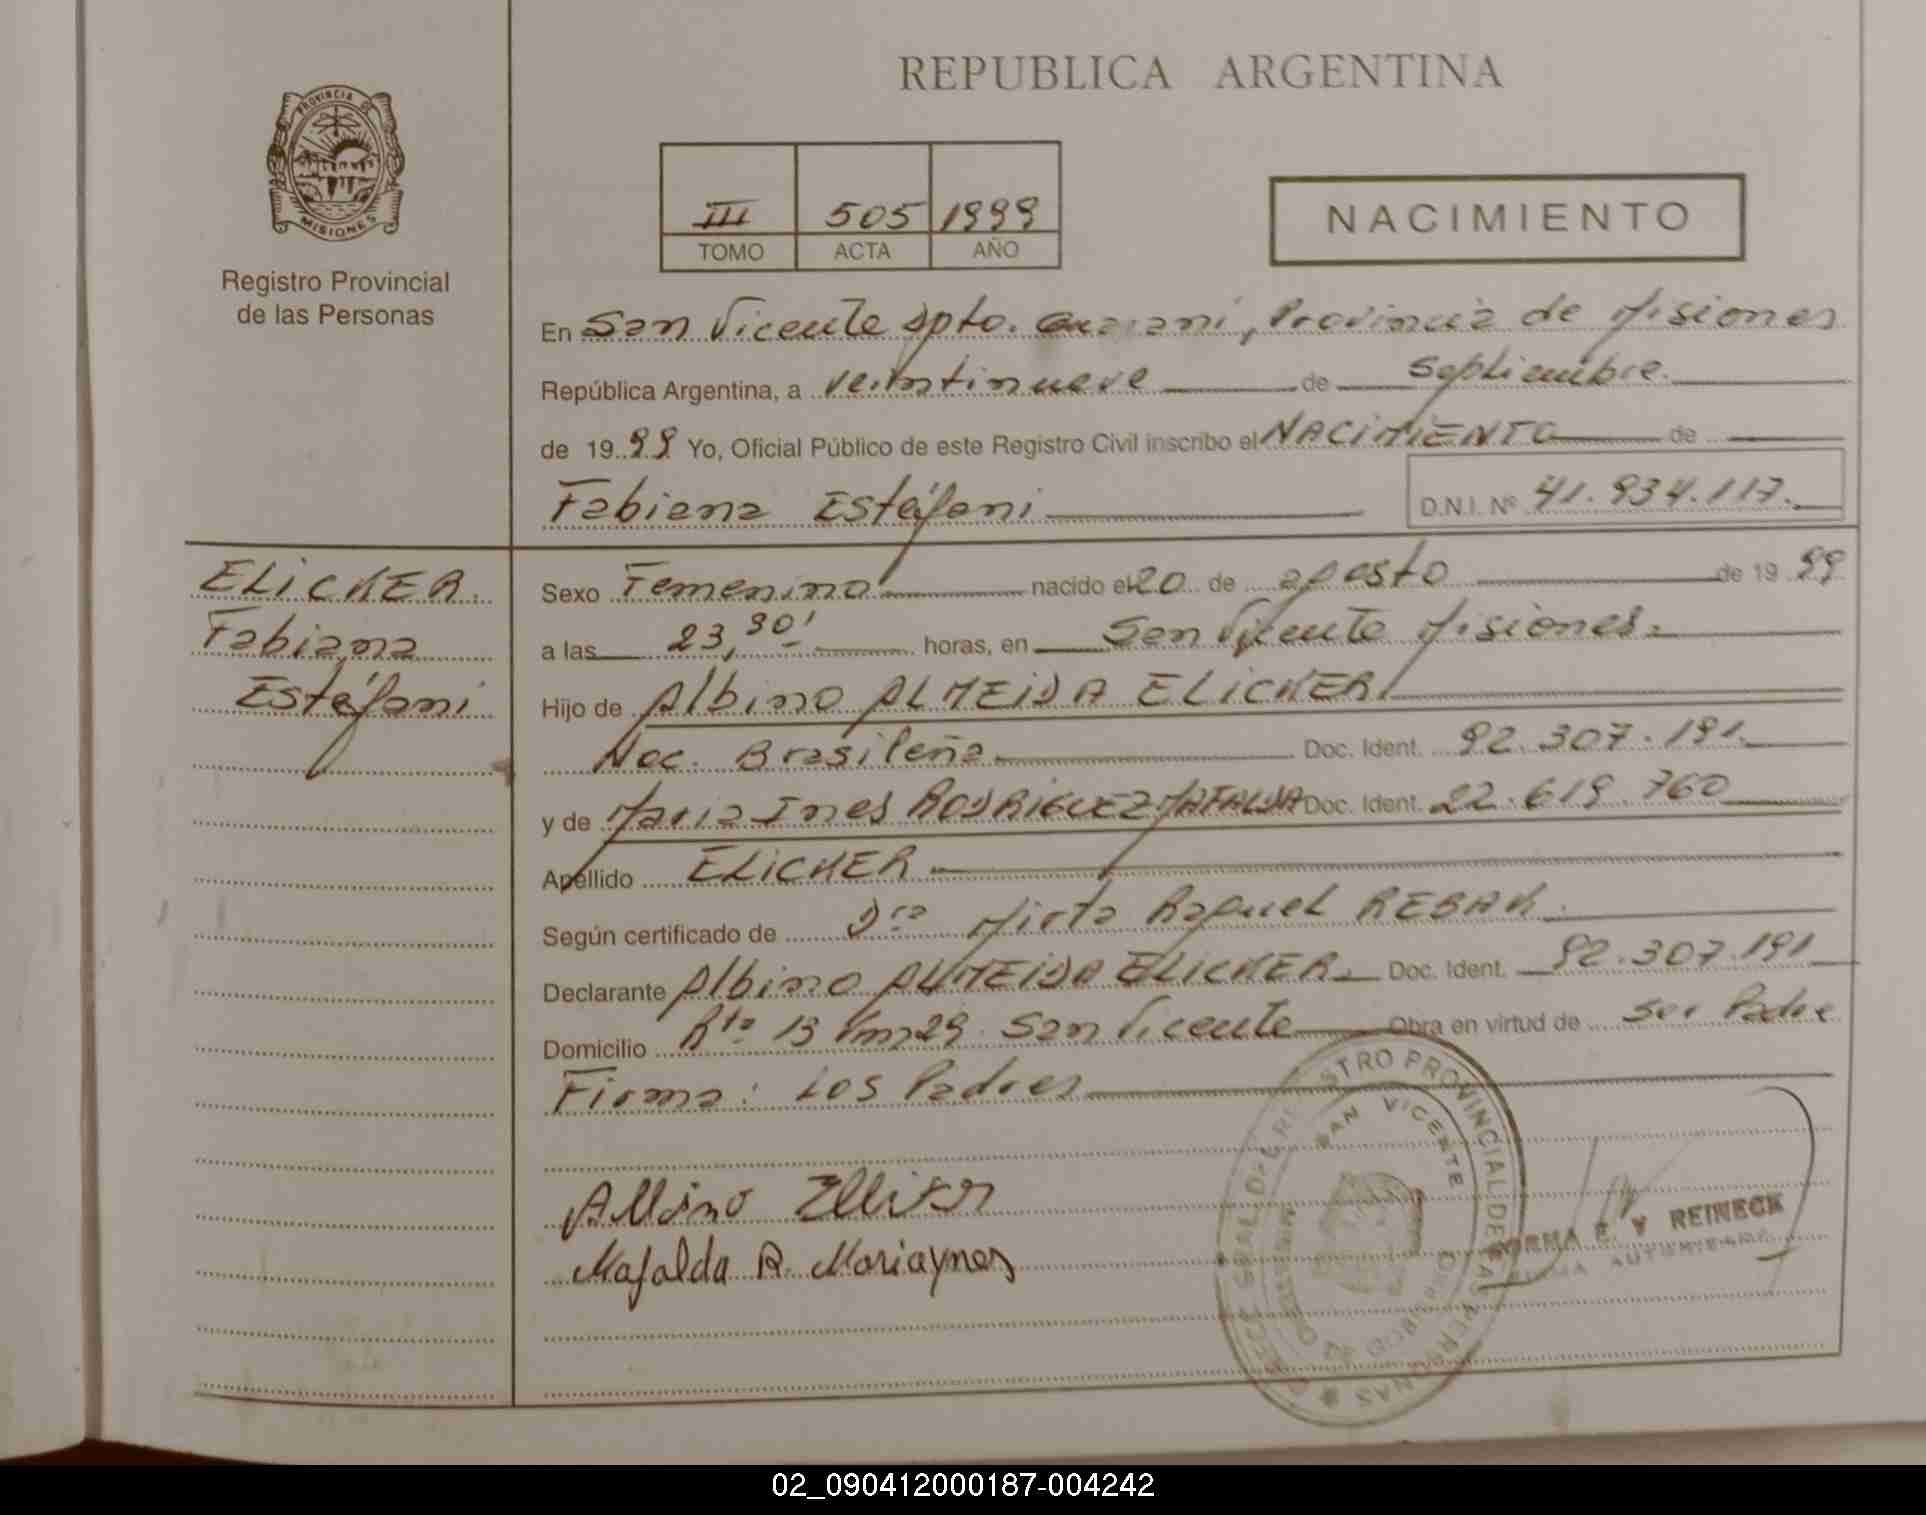 REPUBLICA ARGENTINA
PROVINCIA DE
MISIONES
Registro Provincial
de las Personas
III 505 1999
TOMO ACTA AÑO
NACIMIENTO
En San Vicente Dpto. Guarani, Provincia de Misiones
República Argentina, a veintinueve de Septiembre.
de 19 99 Yo, Oficial Público de este Registro Civil inscribo el NACIMIENTO de
Fabiana Estéfani
D.N.I. Nº 41.934.117.
ELICKER.
Fabiana
Estéfani
Sexo Femenino nacido el 20 de agosto de 19 99
a las 23,30' horas, en San Vicente Misiones.
Hijo de Albino ALMEIDA ELICKER
Nac. Brasileña Doc. Ident. 92.307.191.
y de Maria Ines RODRIGUEZ MAFALDA Doc. Ident. 22.619.760
Apellido ELICKER
Según certificado de Dra Mirta Raquel REBAK.
Declarante Albino ALMEIDA ELICKER. Doc. Ident. 92.307.191
Domicilio Rta 13 Km 29 San Vicente Obra en virtud de Ser Padre
Firma: Los Padres
Albino
Mafalda R. Mariaynes
SAN VICENTE
REGISTRO PROVINCIAL DE LAS PERSONAS
NORMA E. V REINECK
FIRMA AUTORIZADA
02_090412000187-004242